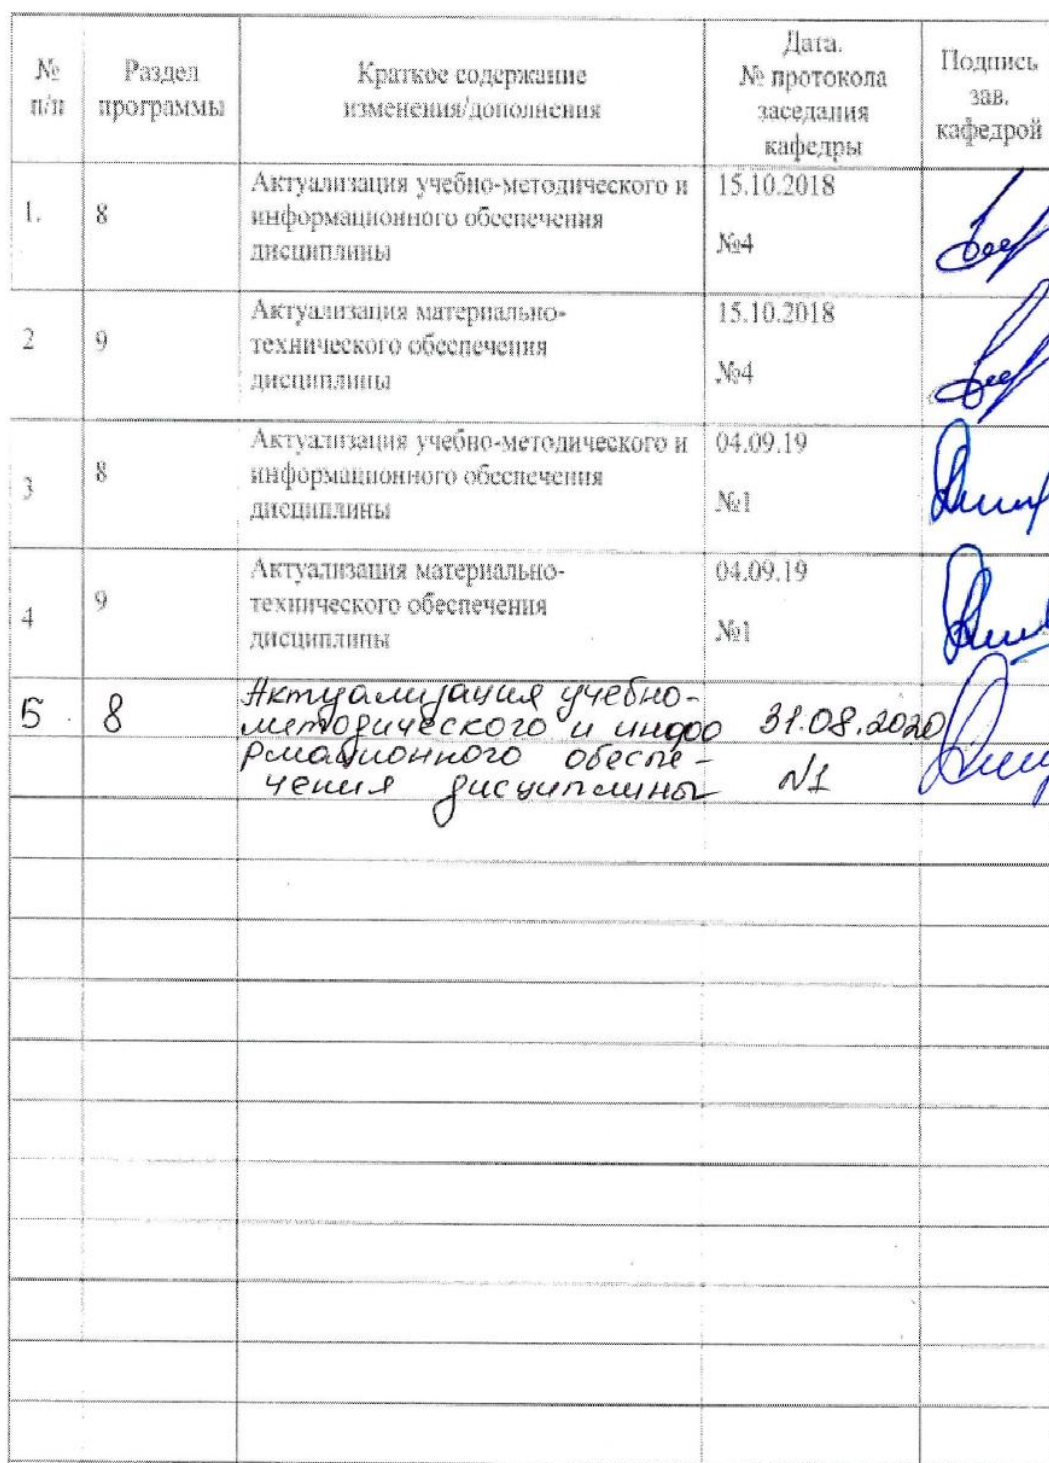 № п/п
Раздел программы
Краткое содержание изменения/дополнения
Дата. № протокола заседания кафедры
Подпись зав. кафедрой
1.
8
Актуализация учебно-методического и
информационного обеспечения
дисциплины
15.10.2018
№4
2
9
Актуализация материально-
технического обеспечения
дисциплины
15.10.2018
№4
3
8
Актуализация учебно-методического и
информационного обеспечения
дисциплины
04.09.19
№1
4
9
Актуализация материально-
технического обеспечения
дисциплины
04.09.19
№1
5.
8
Актуализация учебно-
методического и инфо
рмационного обеспе-
чения дисциплины
31.08.2020
N1